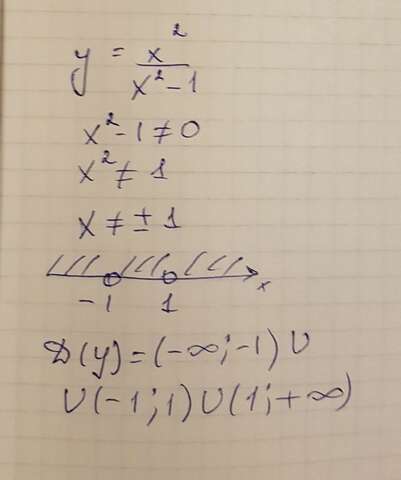 y = x²/(x² - 1)
x² - 1 ≠ 0
x² ≠ 1
x ≠ ± 1
x
-1 1
D(y) = (-∞; -1) ∪
∪ (-1; 1) ∪ (1; +∞)